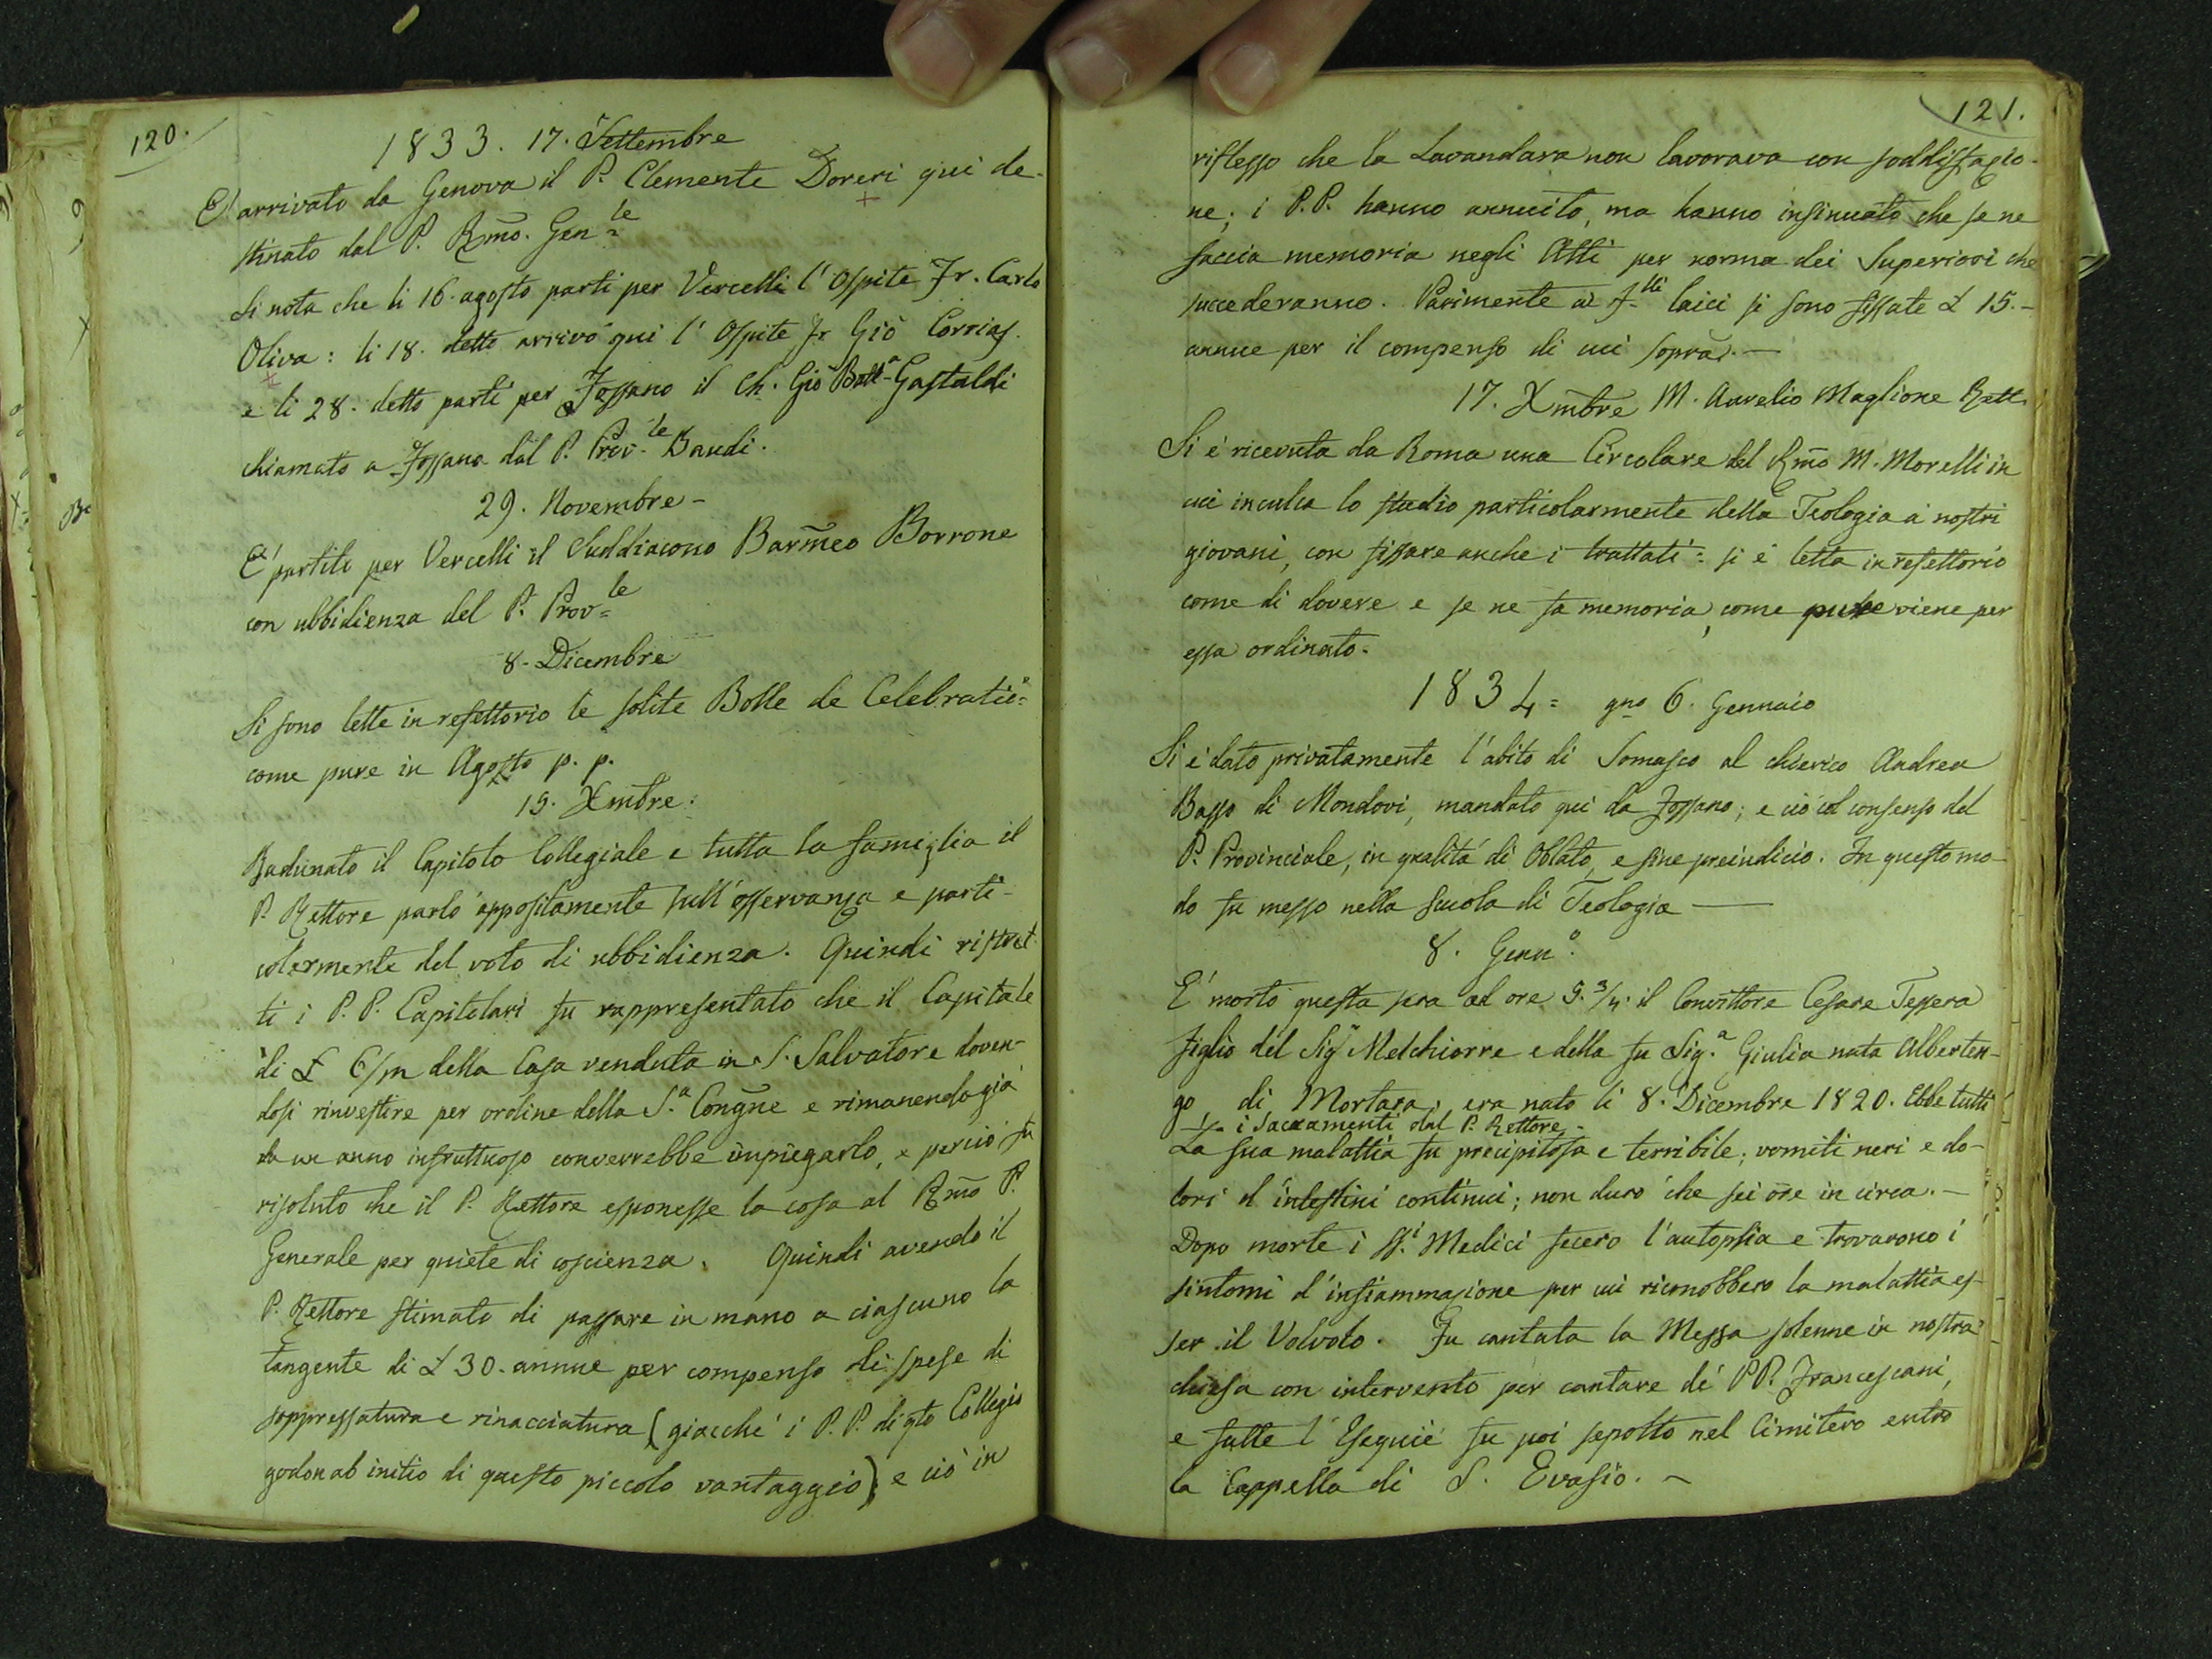 120.
1833. 17. Settembre
E' arrivato da Genova il P. Clemente Doreri qui de-
stinato dal P. Rmo. Gen.le
Si nota che li 16. agosto partì per Vercelli l'Ospite Fr. Carlo
Oliva: li 18. detto arrivò qui l'Ospite Fr Giò Corrias.
e li 28. detto partì per Fossano il Ch. Giò Batta Gastaldi
chiamato a Fossano dal P. Prov.le Baudi.
29. Novembre -
E' partito per Vercelli il Suddiacono Barmeo Borrone
con ubbidienza del P. Prov.le
8. Dicembre
Si sono lette in refettorio le solite Bolle de Celebratie.
come pure in Agosto p. p.
15. Xmbre.
Radunato il Capitolo Collegiale e tutta la famiglia il
P. Rettore parlò appositamente sull'osservanza e parti-
colermente del voto di ubbidienza. Quindi ristret-
ti i P.P. Capitolari fu rappresentato che il Capitale
di £ 6/m della Casa venduta in S. Salvatore doven-
dosi rinvestire per ordine della S.a Congne e rimanendo già
da un anno infruttuoso converrebbe impiegarlo, e perciò fu
risoluto che il P. Rettore esponesse la cosa al Rmo P.
Generale per quiete di coscienza. Quindi avendo il
P. Rettore stimato di passare in mano a ciascuno la
tangente di £ 30. annue per compenso di spese di
soppressatura e rinacciatura (giacché i P.P. di qto Collegio
godon ab initio di questo piccolo vantaggio); e ciò in
121.
riflesso che la Lavandara non lavorava con soddisfazio-
ne; i P.P. hanno annuito, ma hanno insinuato che se ne
faccia memoria negli Atti per norma dei Superiori che
succederanno. Parimente ai F.lli laici si sono fissate £ 15.-
annue per il compenso di cui sopra. -
17. Xmbre M. Aurelio Maglione Rett.
Si è ricevuta da Roma una Circolare del Rmo M. Morelli in
cui inculca lo studio particolarmente della Teologia a' nostri
giovani, con fissare anche i trattati: si è letta in refettorio
come di dovere e se ne fa memoria, come pure viene per
essa ordinato.
1834= gno 6. Gennaio
Si è dato privatamente l'abito di Somasco al chierico Andrea
Basso di Mondovi, mandato qui da Fossano; e ciò col consenso del
P. Provinciale, in qualità di Oblato, e sine preiudicio. In questo mo-
do fu messo nella scuola di Teologia -
8. Genn.o
E' morto questa sera ad ore 5. 3/4. il Convittore Cesare Tessera
figlio del Sigr Melchiorre e della fu Sig.a Giulia nata Alberten-
go di Mortara; era nato li 8. Dicembre 1820. Ebbe tutti
i Sacramenti dal P. Rettore.
La sua malattia fu precipitosa e terribile; vomiti neri e do-
lori d'intestini continui; non durò che sei ore in circa. -
Dopo morte i SS.i Medici fecero l'autopsia e trovarono i
sintomi d'infiammazione per cui riconobbero la malattia es-
ser il Volvolo. Fu cantata la Messa solenne in nostra
chiesa con intervento per cantare de' PP. Francescani,
e fatte l'Esequie fu poi sepolto nel Cimitero entro
la Cappella di S. Evasio. -